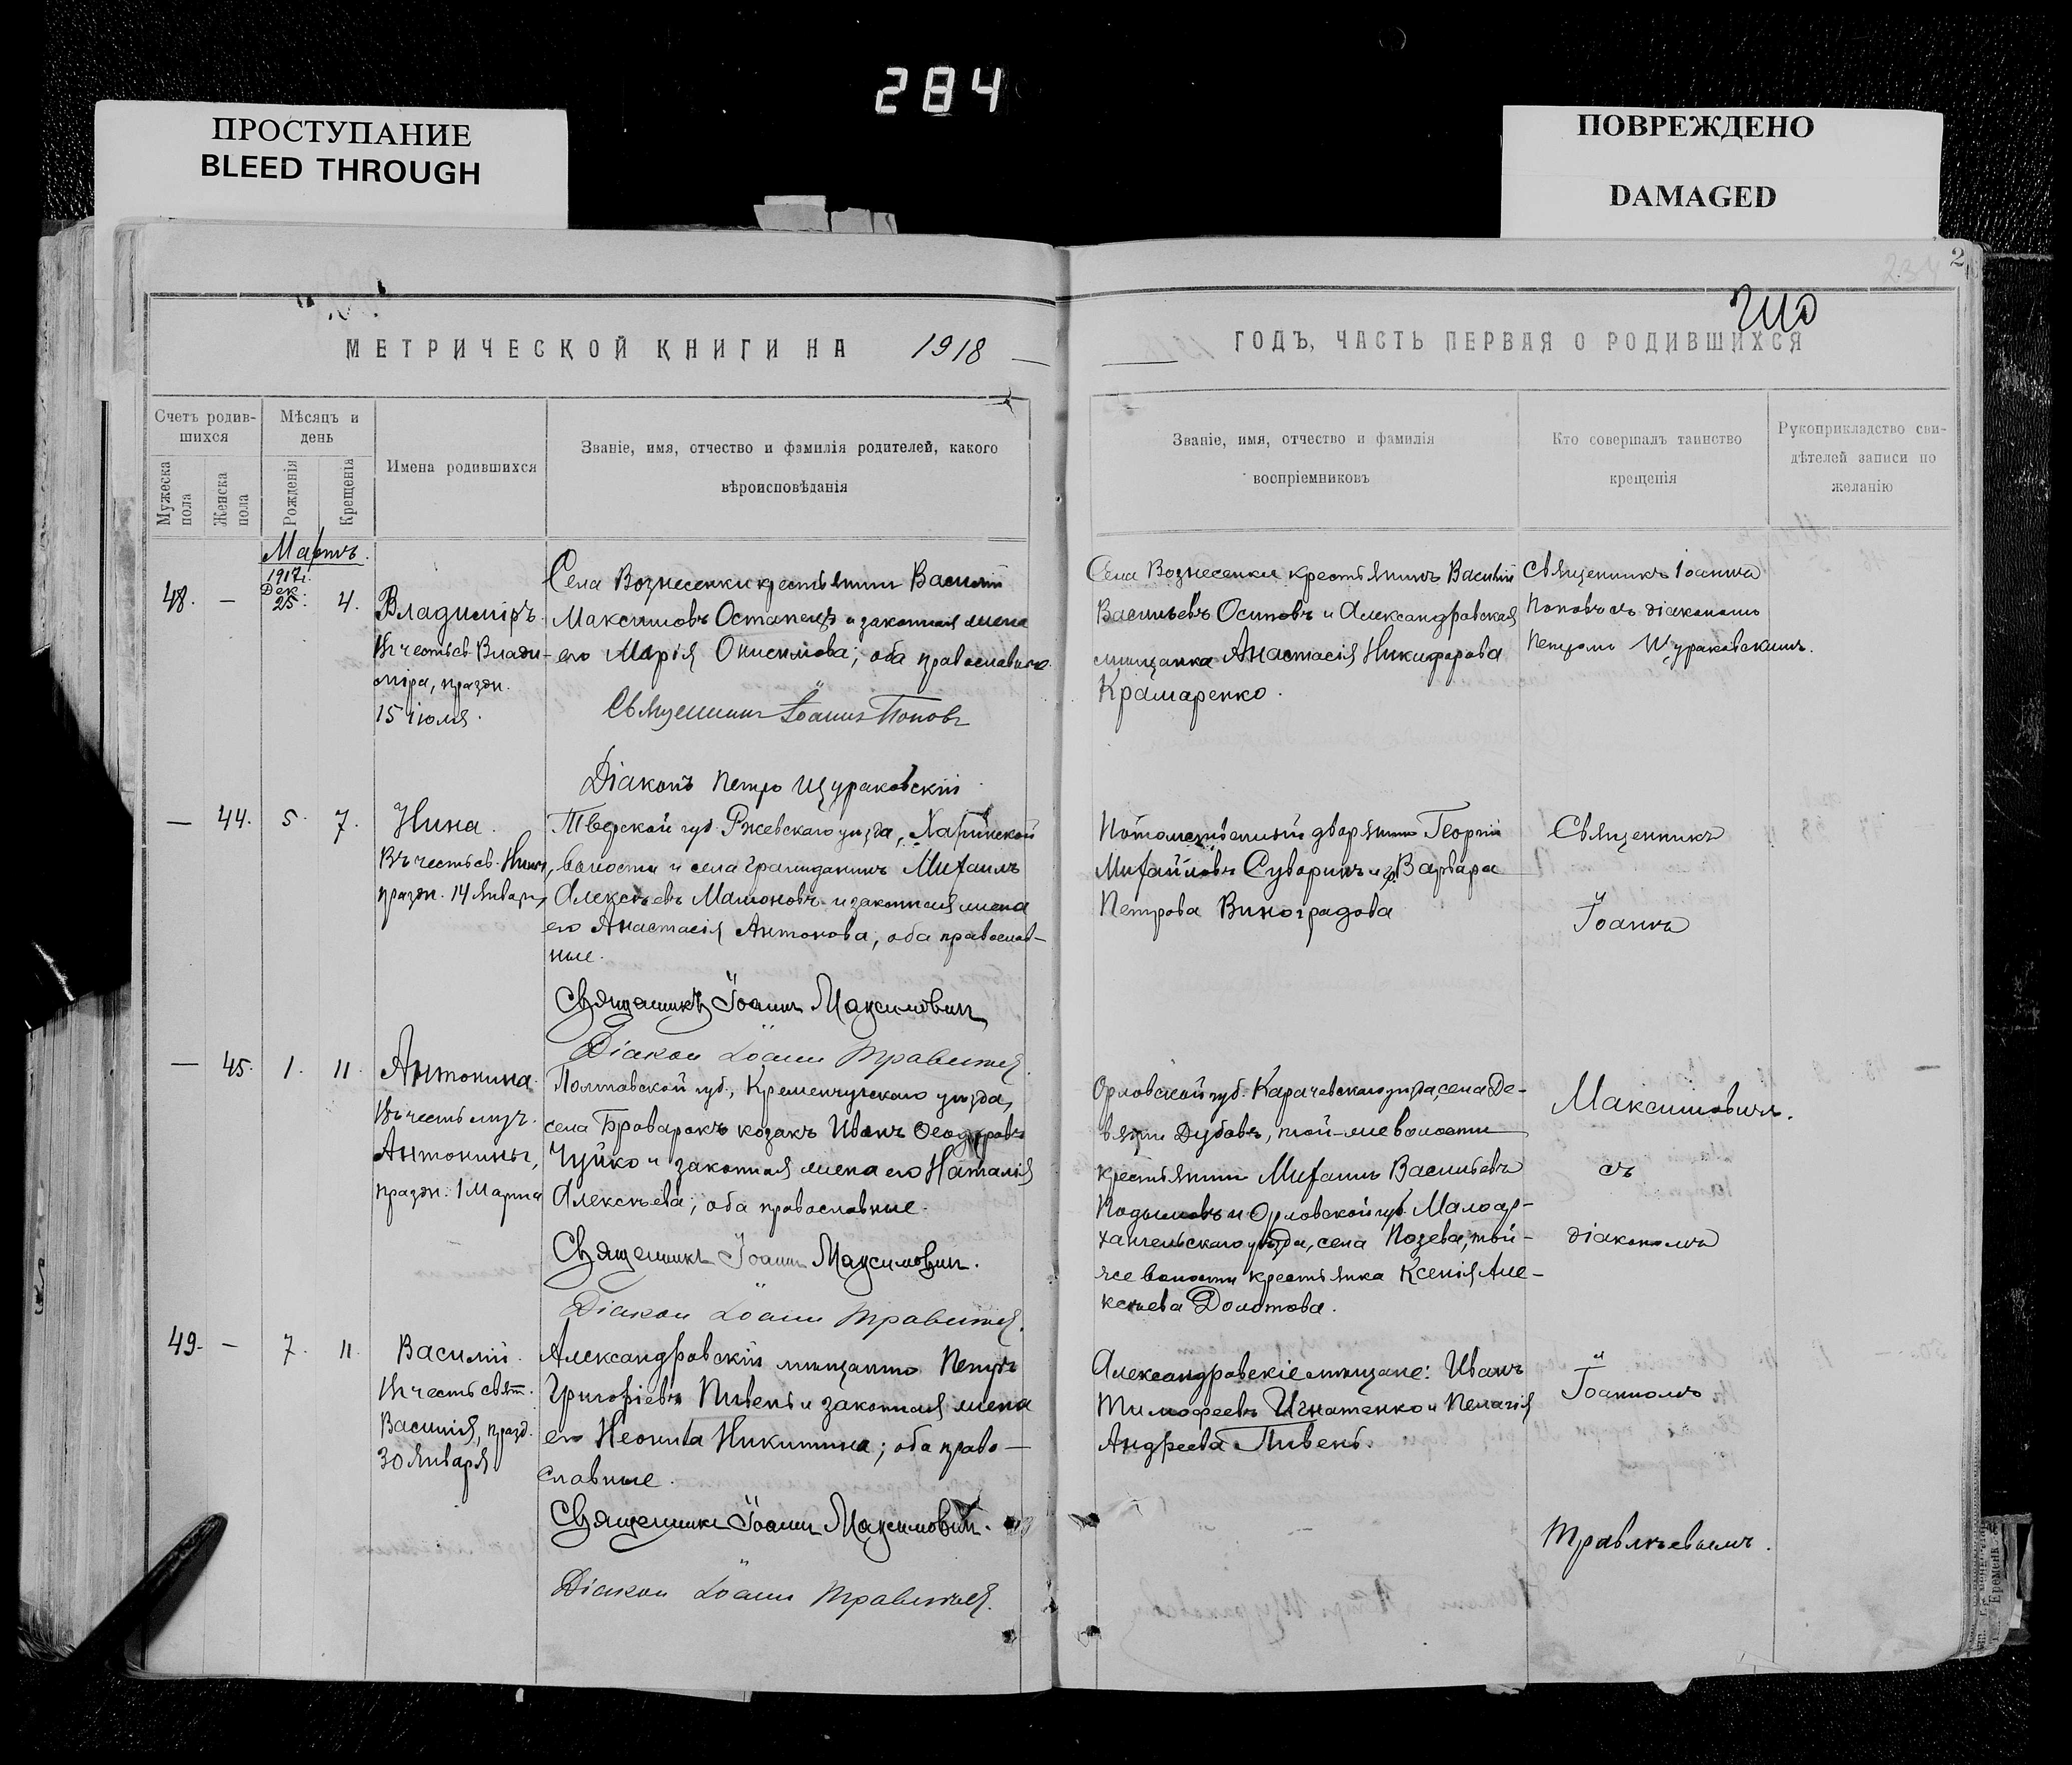 284
ПРОСТУПАНИЕ
BLEED THROUGH
ПОВРЕЖДЕНО
DAMAGED
МЕТРИЧЕСКОЙ КНИГИ НА 1918
Счетъ родив-
шихся
Мѣсяцъ и
день
Имена родившихся
Званіе, имя, отчество и фамилія родителей, какого
вѣроисповѣданія
Мужеска
пола
Женска
пола
Рожденія
Крещенія
Мартъ.
48. — 1917г.
Дек.
25. 4.
Владиміръ.
Въ честь св. Влади-
міра, праздн.
15 іюля.
Села Вознесенки крестьянинъ Василій
Максимовъ Остапецъ и законная жена
его Марія Онисимова; оба православные
Священникъ Іоаннъ Поповъ
Діаконъ Петръ Щураковскій
— 44. 5. 7.
Нина.
Въ честь св. Нины,
праздн. 14 января
Тверской губ. Ржевскаго уѣзда,
волости и села гражданинъ Михаилъ
Алексѣевъ и законная жена
его Анастасія Антонова, оба православ-
ные.
Священникъ Іоаннъ Максимович
Діакон Іоанн
— 45. 1. 11.
Антонина.
Въ честь муч.
Антонины,
праздн. 1 Марта
Полтавской губ., Кременчугскаго уѣзда,
села Броварокъ козакъ Иванъ Ѳеодоровъ
Чуйко и законная жена его Наталія
Алексѣева; оба православные.
Священникъ Іоаннъ Максимович.
Діакон Іоанн
49. — 7. 11.
Василій.
Въ честь свят.
Василія, празд.
30 января
Александровскій мѣщанинъ Петръ
Григоріевъ Пивень и законная жена
его Неонила Никитина; оба право-
славные.
Священникъ Іоаннъ Максимович.
Діакон Іоанн
2
234
ГОДЪ, ЧАСТЬ ПЕРВАЯ О РОДИВШИХСЯ
Званіе, имя, отчество и фамилія
воспріемниковъ
Кто совершалъ таинство
крещенія
Рукоприкладство сви-
дѣтелей записи по
желанію
Села Вознесенки крестьянинъ Василій
Васильевъ Осиповъ и Александровская
мѣщанка Анастасія Никифорова
Крамаренко.
Священникъ Іоаннъ
Поповъ съ діакономъ
Петромъ Щураковскимъ.
Потомственный дворянинъ Георгій
Михайловъ Суворинъ и Варвара
Петрова Виноградова
Священникъ
Іоаннъ
Орловской губ. Карачевскаго уѣзда, села Де-
вяти Дубовъ, той-же волости
крестьянинъ Михаилъ Васильевъ
и Орловской губ. Малоар-
хангельскаго уѣзда, села той-
же волости крестьянка Ксенія Але-
ксѣева Долотова.
Максимовичъ.
съ
діакономъ
Александровскіе мѣщане: Иванъ
Тимофеевъ Игнатенко и Пелагія
Андреева Пивень.
Іоанномъ
Травлѣевымъ.